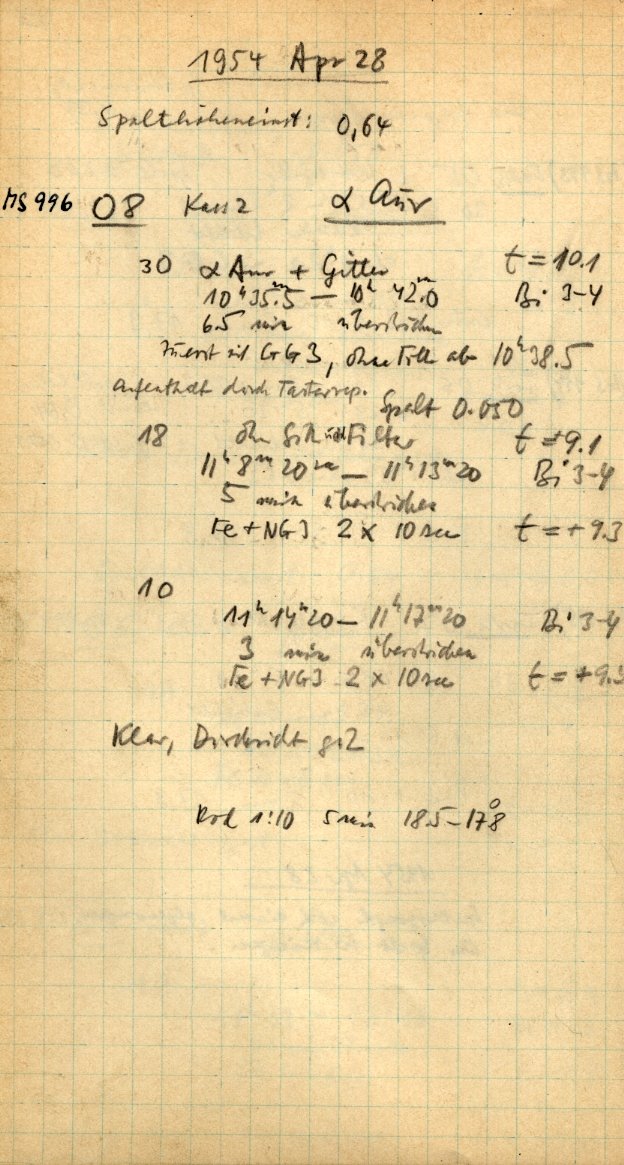 1954 Apr 28
Spalthöheneinst: 0,64
MS 996 08 Kass 2 α Aur
30 α Aur + Gitter t = 10.1
10ʰ35.5ᵐ — 10ʰ 42.0ᵐ Bi 3-4
6.5 min überstrichen
Zuerst mit GG3, ohne Filter ab 10ʰ38.5
Aufenthalt durch Tasterrep.
Spalt 0.050
18 ohne Gitter und Filter t = +9.1
11ʰ 8ᵐ 20 — 11ʰ 13ᵐ 20 Bi 3-4
5 min überstrichen
Fe + NG3 2 x 10 sec t = + 9.3
10
11ʰ 14ᵐ 20 — 11ʰ 17ᵐ 20 Bi 3-4
3 min überstrichen
Fe + NG3 2 x 10 sec t = + 9.3
Klar, Durchsicht gut
Rod 1:10 5 min 18.5 - 17.8°